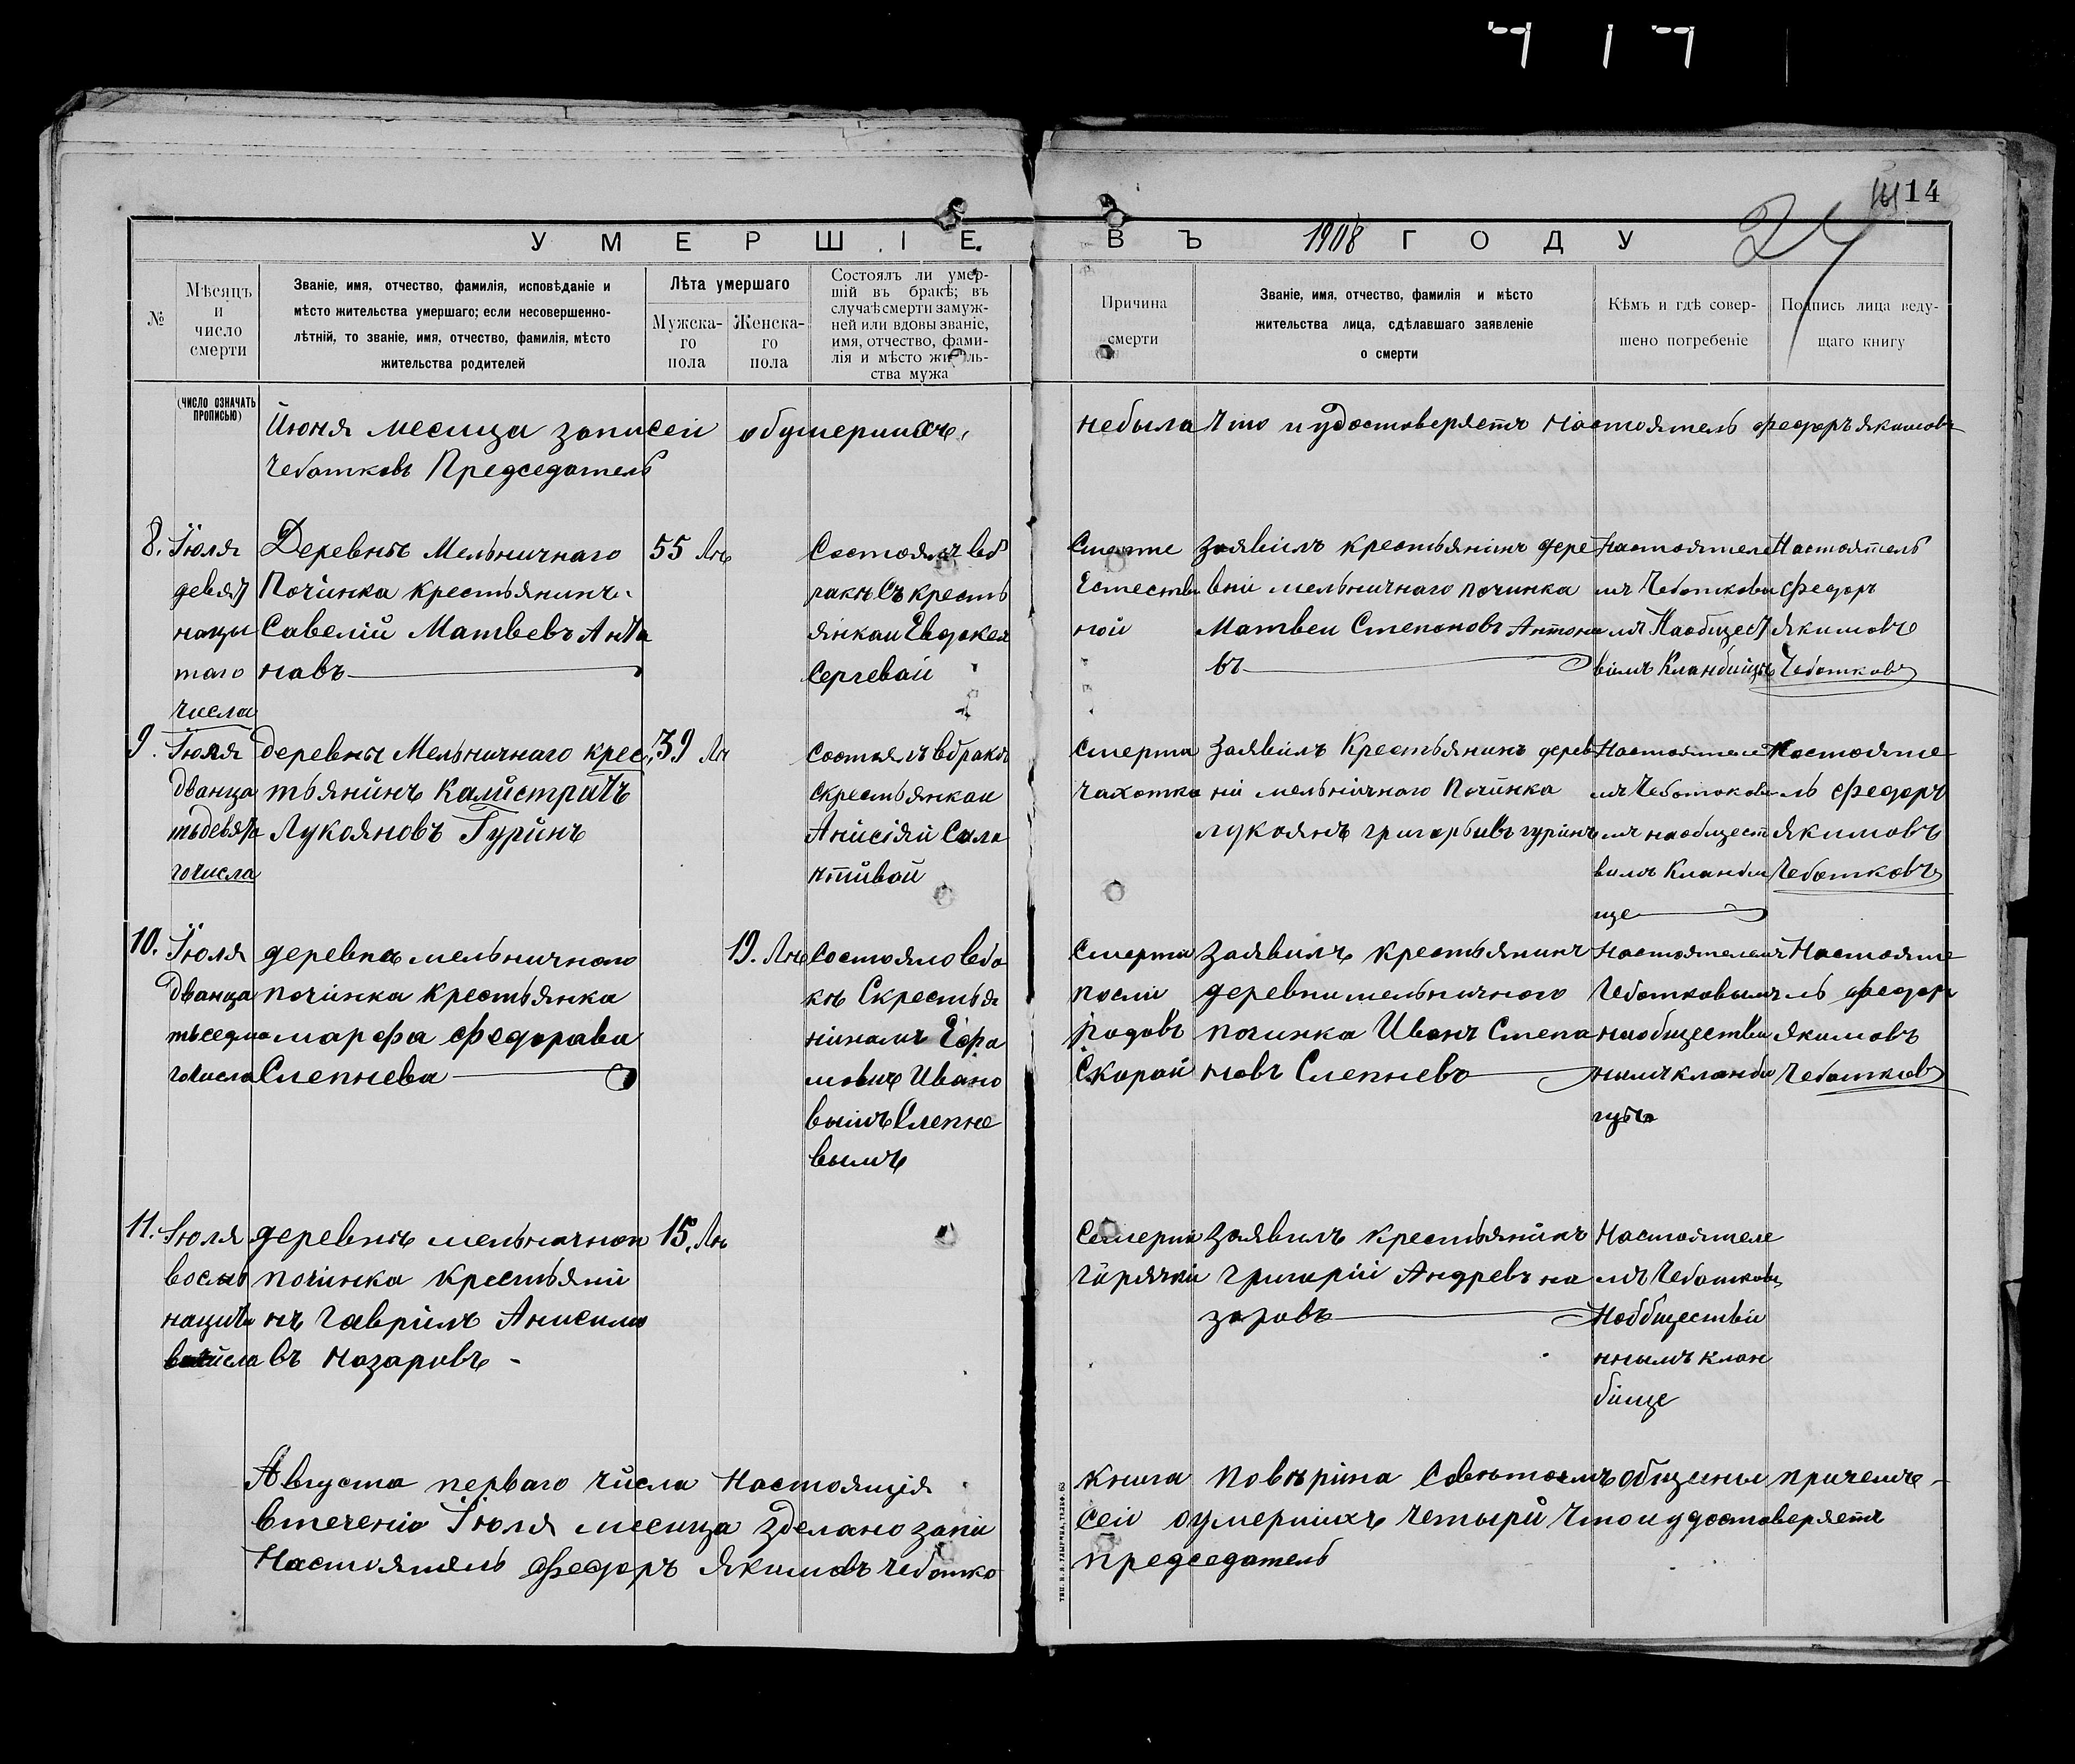 14
24
УМЕРШІЕ ВЪ 1908 ГОДУ
№
Мѣсяцъ
и
число
смерти
Званіе, имя, отчество, фамилія, исповѣданіе и
мѣсто жительства умершаго; если несовершенно-
лѣтній, то званіе, имя, отчество, фамилія, мѣсто
жительства родителей
Лѣта умершаго
Мужска-
го
пола
Женска-
го
пола
Состоялъ ли умер-
шій въ бракѣ; въ
случаѣ смерти замуж-
ней или вдовы званіе,
имя, отчество, фами-
лія и мѣсто житель-
ства мужа
Причина
смерти
Званіе, имя, отчество, фамилія и мѣсто
жительства лица, сдѣлавшаго заявленіе
о смерти
Кѣмъ и гдѣ совер-
шено погребеніе
Подпись лица веду-
щаго книгу
(число означать
прописью)
Июня месица записей обумершихъ, небыла Что и удостоверяетъ Настоятель Федоръ Якимовъ
Чеботковъ Председатель
8.
Іюля
девят
нацы
таго
числа
Деревнѣ Мельничнаго
Починка крестьянинъ
Савелій Матвеевъ Анта
навъ
55 Лѣ
Состоялъ вб
ракѣ Съ кресть
янкаи Евдокея
Сергевай
Смерте
Естеств
ной
Заявилъ крестьянинъ дере
вни мельничнаго починка
Матвеи Степановъ Антона
въ
Настоятеле
мъ Чеботковы
мъ Наобщест
вимъ Кланбищѣ
Настоятель
Федоръ
Якимовъ
Чеботковъ
9.
Іюля
дванца
тьдевята
гочисла
деревнѣ Мельничнаго крес,
тьянинъ Калистратъ
Лукояновъ Гуринъ
39 Лѣ
состоялъ вбракѣ
скрестьянкаи
Анисіяй Сала
нтивой
Смерта
чахотка
Заявилъ Крестьянинъ дерев
ни мельничнаго Починка
лукоянъ григорьивъ гуринъ
Настоятеле
мъ Чеботокови
мъ наобщест
вимъ Кланби
ще
Настояте
ль Федоръ
Якимовъ
Чеботковъ
10.
Іюля
дванца
тьседмо
гочисла
деревнѣ мельничнаго
починка крестьянка
марфа Федорава
Слепнева
19. Лѣ
Состояло вбра
кѣ Скрестья
нинамъ Ефи
мовиъ Ивано
вымъ Слепне
вымъ
Смерти
посли
родовъ
Скарай
заявилъ крестьянинъ
деревни мельничнаго
починка Иванъ Степа
новъ Слепневъ
Настоятелемъ
Чеботковымъ
наобществи
нымъ кланби
Настояте
ль Федоръ
Якимовъ
Чеботковъ
11.
Іюля
восьм
нацыта
числа
деревнѣ мельничнаи
починка крестьяни
нъ Гаврилъ Анисимо
въ Назаровъ -
15. Лѣ
Смерти
Гарячки
Заявилъ крестьянинъ
Григарій Андревъ на
заровъ
Настоятеле
мъ Чеботковы
Наббществи
ннымъ клан
бище
Августа перваго числа Настоящія книга поверина Советомъ общины причемъ
втечениа Іюля месица зделано запи сеи оумершихъ четыри Что и удостоверяетъ
Настоятель Федоръ Якимовъ Чеботко председатель